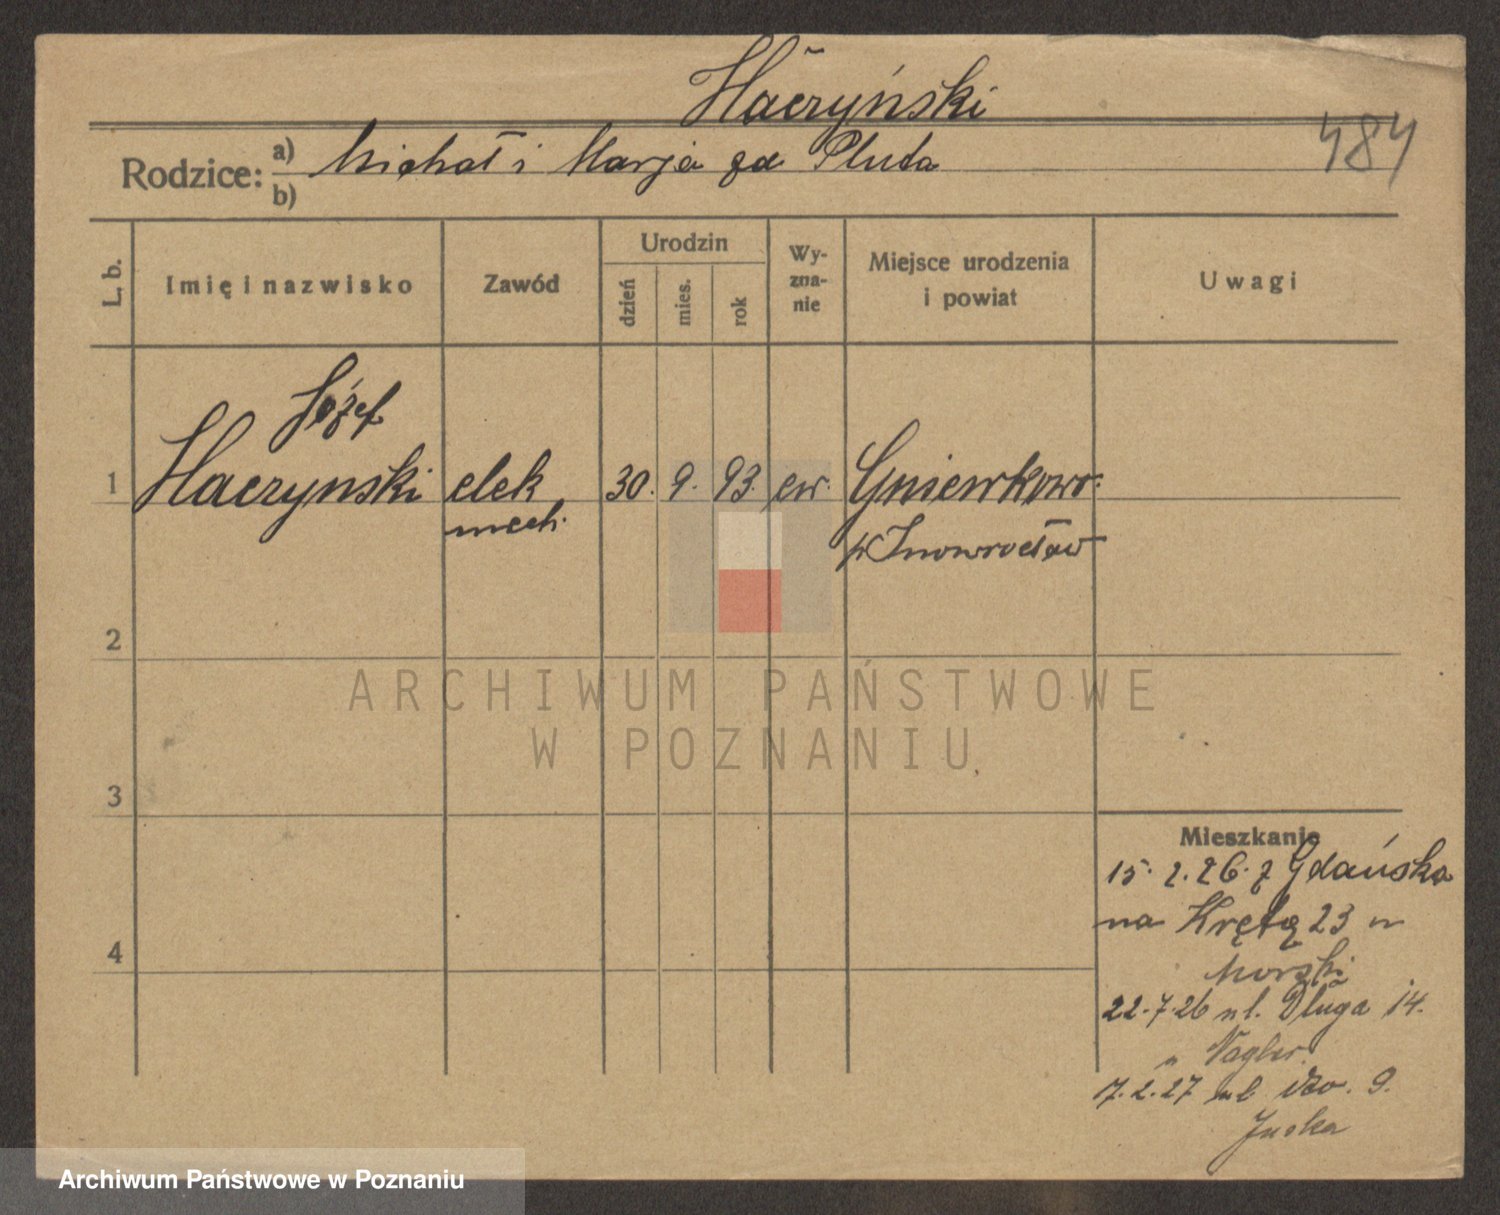 Haczyński
484
Rodzice: a) Michał i Marja zd Pluta
b)
L. b.
Imię i nazwisko
Zawód
Urodzin
dzień
mies.
rok
Wy-
zna-
nie
Miejsce urodzenia
i powiat
Uwagi
Józef
1 Haczynski elek 30. 9. 93. ew. Gniewkowo
mech. p Inowrocław
2
3
4
Mieszkanie
15. 2. 26. z Gdańska
na Krętą 23 u
Morski
22.7.26 ul. Długa 14.
u Nagler.
17.2.27 ul 9.
ARCHIWUM PAŃSTWOWE
W POZNANIU
Archiwum Państwowe w Poznaniu